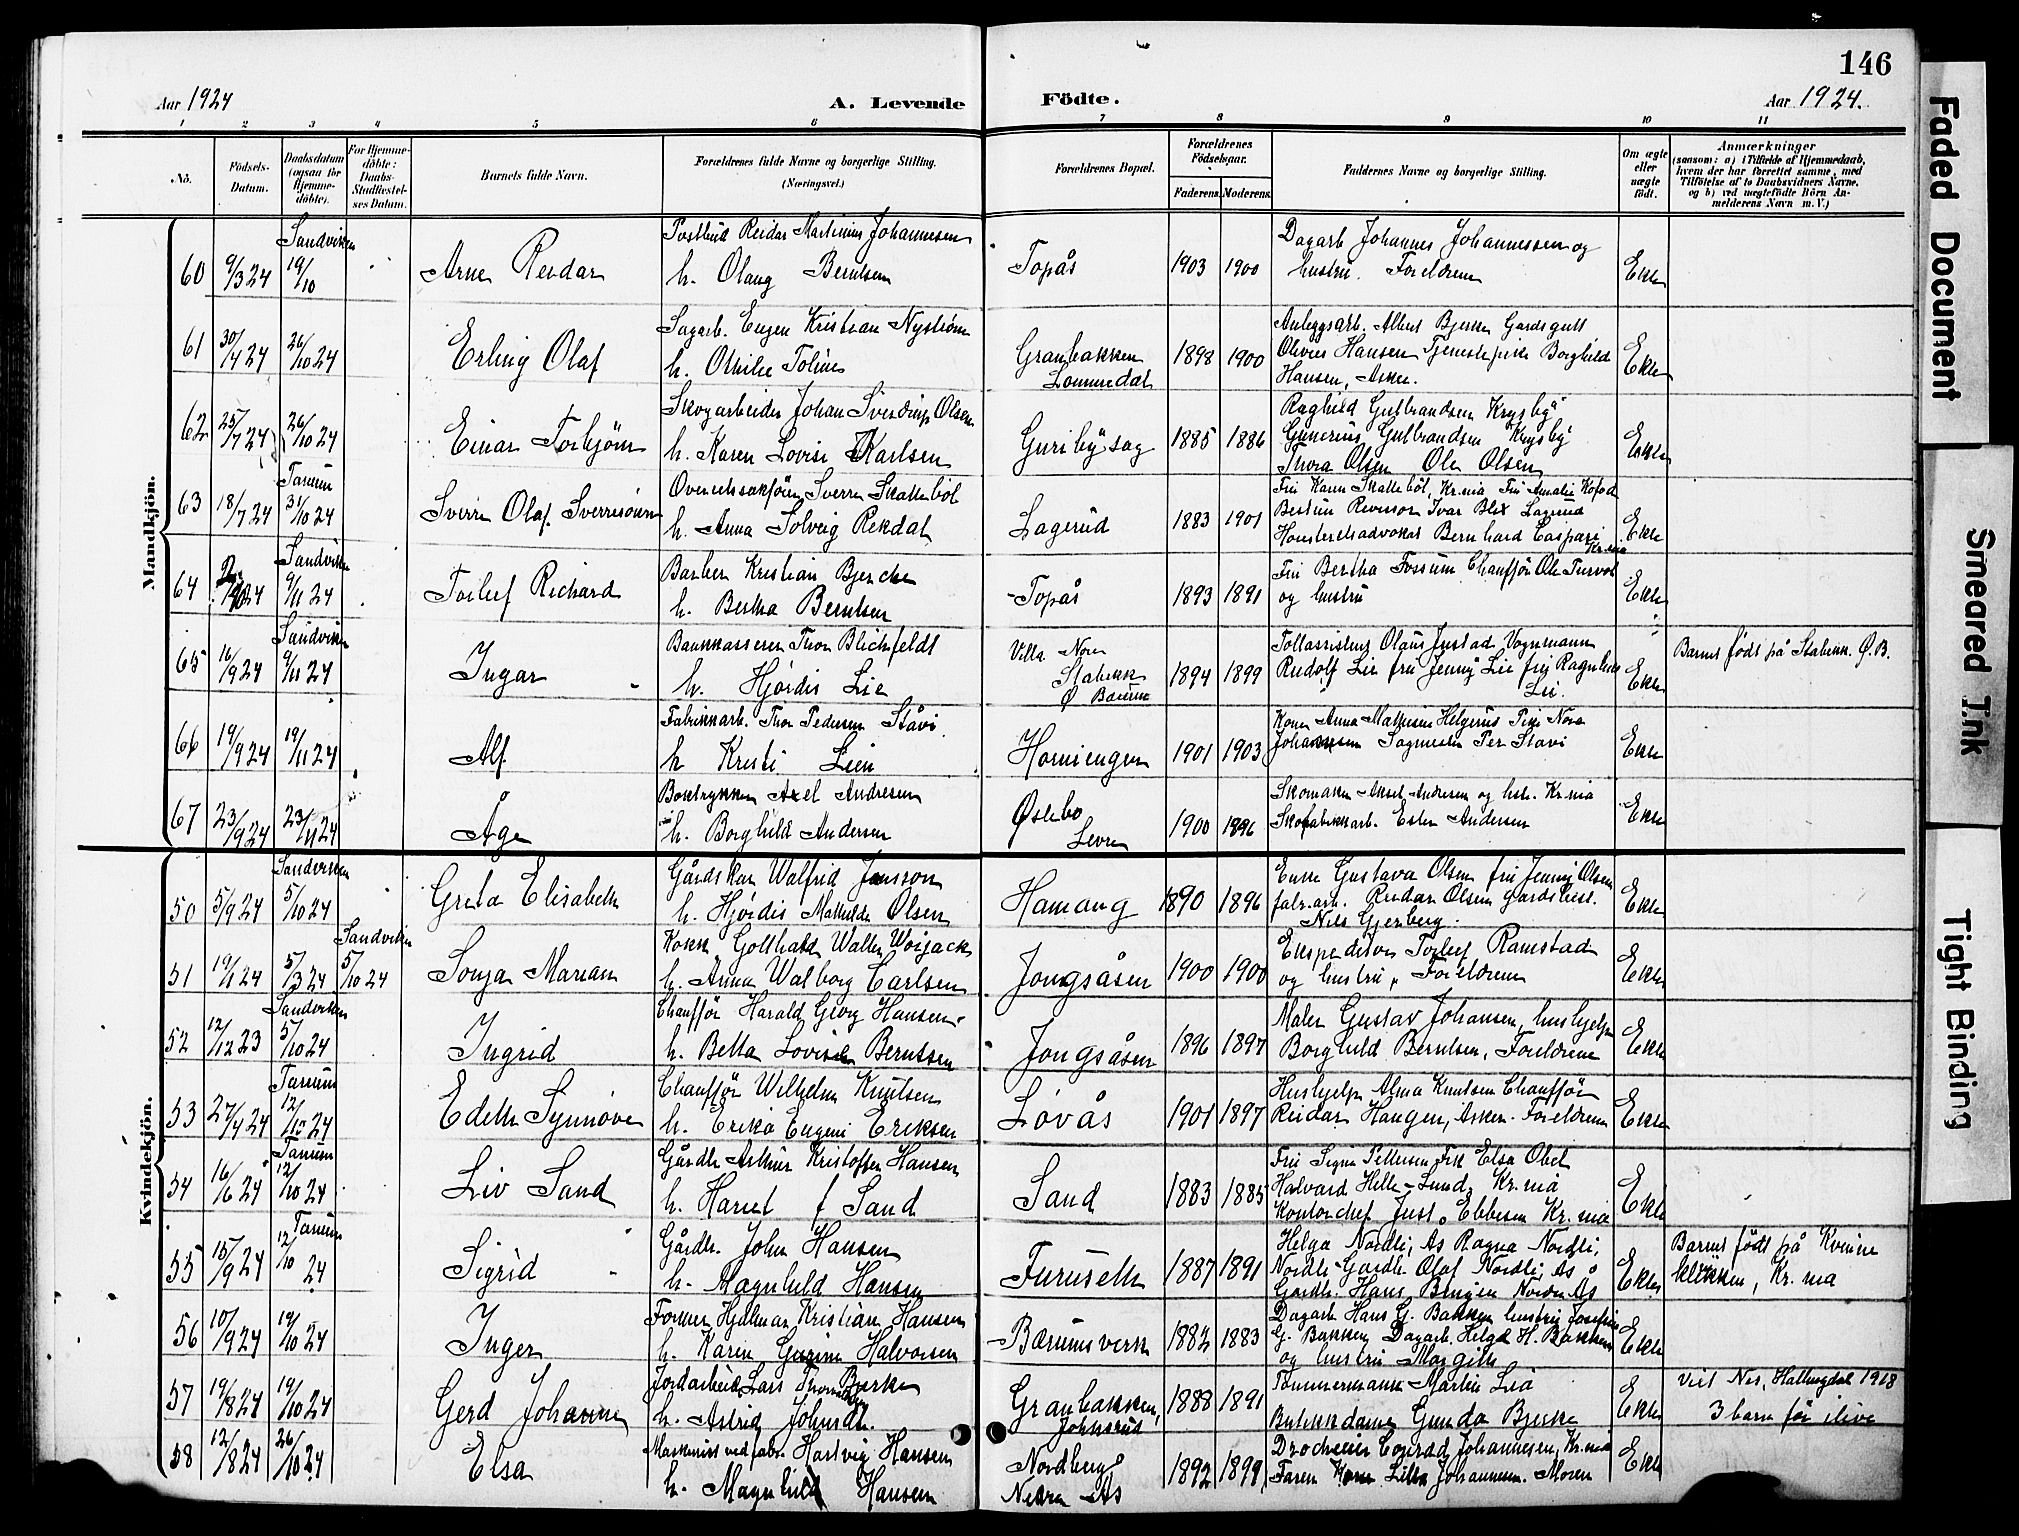 146
Aar 1924
A. Levende Födte.
Aar 1924.
1 2 3 4 5 6 7 8 9 10 11
No.
Födsels-
Datum.
Daabsdatum
(ogsaa for
Hjemme-
döbte).
For Hjemme-
döbte:
Daabs-
Stadfæstel-
ses Datum.
Barnets fulde Navn.
Forældrenes fulde Navne og borgerlige Stilling.
(Næringsvei.)
Forældrenes Bopæl.
Forældrenes
Födselsaar.
Faderens. Moderens.
Faddernes Navne og borgerlige Stilling.
Om ægte
eller
uægte
födt.
Anmærkninger
(saasom: a) i Tilfælde af Hjemmedaab,
hvem der har forrettet samme, med
Tilföielse af to Daabsvidners Navne,
og b) ved uægtefödte Börn An-
melderens Navn m. V.)
Mandkjön.
Sandviken
60 9/3 24 19/10
Arne Reidar
Postbud Reidar Martinius Johannesen
h. Olaug Berntsen
Topås
1903 1900
Dagarb. Johannes Johannessen og
hustru. Foreldrene
Ekte
61 30/4 24 26/10 24
Erling Olaf
Sagarb. Eugen Kristian Nystrøm
h. Othilie
Granbakken
Lommedal
1898 1900
Anleggsarb. Albert Bjerke Gardsgutt
Olivier Hansen Tjenestepike Borghild
Hansen, Asker.
Ekte
62 25/7 24 26/10 24
Einar Torbjörn
Skogarbeider Johan Sverdrup Olsen
h. Karen Lovise Karlsen
Guribysag
1885 1886
Raghild Gulbrandsen Krysby
Gunerius Gulbrandsen Krysby
Thora Olsen Ole Olsen
Ekte
Tanum
63 18/7 24 31/10 24
Sverre Olaf Sverresönn
Overretssakförer Sverre Skatteböl
h. Anna Solveig Rekdal
Lagerud
1883 1901
Fru Karen Skattebøl, Kr.nia Fru Amalie Kofod
Bestum Revisor Ivar Blix Lagerud
Höiesteretsadvokat Bernhard Caspari
Kr.nia
Ekte
Sandviken
64 24 9/11 24
Torleif Richard
Barber Kristian Bjercke
h. Bertha Berntsen
Topås
1893 1891
Fru Bertha Fossum Chaufför Ole
og hustru
Ekte
Sandviken
65 16/9 24 9/11 24
Ingar
Bankkasserer Thor Blichfeldt
h. Hjördis Lie
Villa Nore
Stabekk
Ø Bærum
1894 1899
Tollassistent Olaus Justad Vognmann
Rudolf Lie fru Jenny Lie frk Ragnhild
Lie.
Ekte
Barnet født på Stabekk. Ø. B.
66 19/9 24 19/11 24
Alf
Fabrikkarb. Thor Pedersen Stävi
h Kristi Lien
Horniengen
1901 1903
Kone Anna Mathisen Helgerus Pike Nora
Johannesen Sagmester Per Stavi
Ekte
67 23/9 24 23/11 24
Åge
Boktrykker Axel Andresen
h. Borghild Andersen
Øslebo
Levre
1900 1896
Skomaker Aksel Andresen og hst. Kr.nia
Skofabrikkarb. Ester Andersen
Ekte
Kvindekjön.
Sandviken
50 5/9 24 5/10 24
Greta Elisabeth
Gårdskar Walfrid Jansson
h. Hjördis Mathilde Olsen
Hamang
1890 1896
Enke Gustava Olsen fru Jenny Olsen
fabr.arb. Reidar Olsen gardsbest.
Nils Gjerberg.
Ekte
Sandviken
51 19/1 24 5/3 24 5/10 24
Sonja Marian
Kokk Gotthard Walter Woijack
h. Anna Walborg Carlsen
Jongsåsen
1900 1900
Ekspeditör Torleif Ramstad
og hustru, Foreldrene
Ekte
Sandviken
52 12/12 23 5/10 24
Ingrid
Chauffør Harald Georg Hansen
h. Betta Lovise Berntsen
Jongsåsen
1896 1897
Maler Gustav Johansen, hushjelp
Borghild Berntsen, Foreldrene
Ekte
Tanum
53 27/4 24 12/10 24
Edith Synnöve
Chauffør Wilhelm Knutsen
h. Erika Eugeni Eriksen
Lövås
1901 1897
Hushjelp Alma Knutsen Chauffør
Reidar Haugen, Asker. Foreldrene
Ekte
Tanum
54 16/6 24 12/10 24
Liv Sand
Gårdbr Arthur Kristoffer Hansen
h. Harriet f Sand
Sand
1883 1885
Fru Signe Pettersen Frk Elsa Obel
Halvard Hille-Lund, Kr.nia
Kontorchef Just. Ebbesen Kr.nia
Ekte
Tanum
55 15/9 24 12/10 24
Sigrid
Gårdbr. John Hansen
h. Magnhild Hansen
Furuseth
1887 1891
Helga Nordli, Ås Ragna Nordli,
Nordli Gardbr Olaf Nordli, Ås
Gardbr. Hans Bingen Nordre Ås
Ekte
Barnet født på Kvinne
klikken, Kr.nia
56 10/9 24 19/10 24
Inger
Former Hjalmar Kristian Hansen
h. Karen Gurine Halvorsen
Bærumsverk
1882 1883
Dagarb Hans G. Bakken hustru Josefine
G. Bakken Dagarb. Helge H. Bakken
og hustru Margith
Ekte
57 19/8 24 19/10 24
Gerd Johanne
Jordarbeid. Lars Bjerke
h. Astrid Johnsdtr.
Granbakken,
Johnsrud
1888 1891
Tømmermann Martin Lia
Butikkdame Gunda Bjerke
Ekte
Viet Nes, Hallingdal 1918
3 barn før ilive
58 12/8 24 26/10 24
Elsa
Maskinist ved fabr. Hartvig Hansen
h. Magnhild Hansen
Nordberg
Nedre Ås
1892 1899
Conrad Johannesen, Kr.nia
Faren Kone Lilla Johannesen. Moren
Ekte
Faded Document
Smeared Ink
Tight Binding